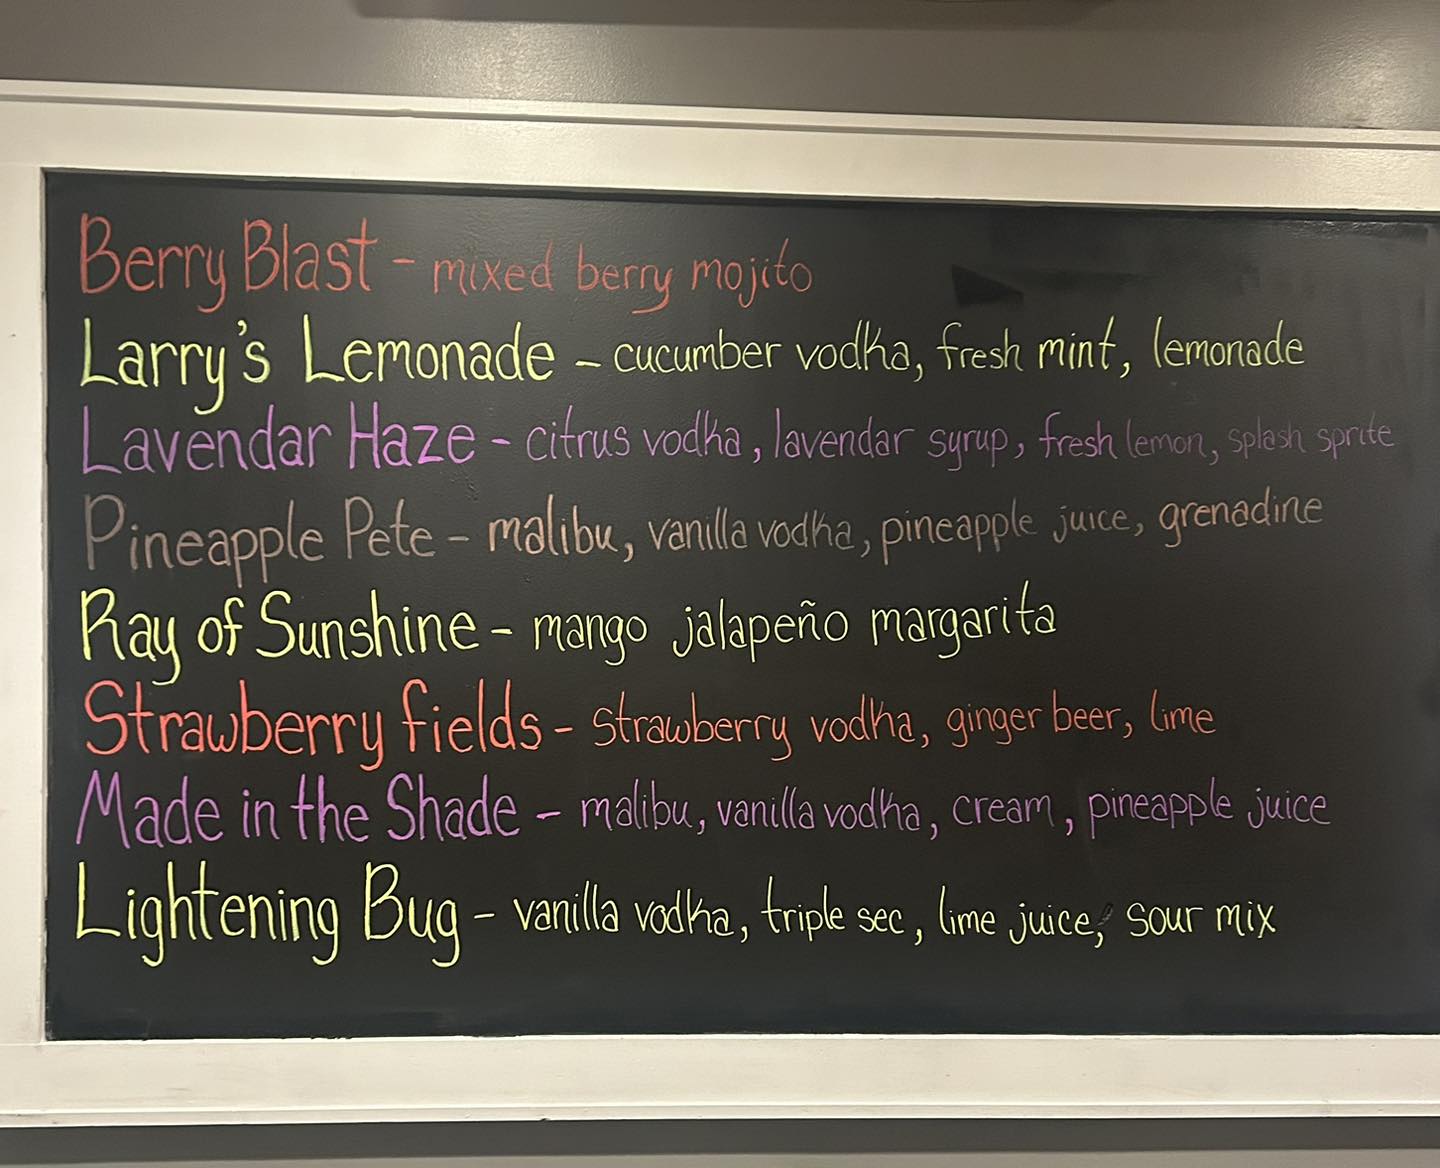 Berry Blast - mixed berry mojito
Larry's Lemonade - cucumber vodka, fresh mint, lemonade
Lavendar Haze - citrus vodka, lavendar syrup, fresh lemon, splash sprite
Pineapple Pete - malibu, vanilla vodka, pineapple juice, grenadine
Ray of Sunshine - mango jalapeño margarita
Strawberry fields - strawberry vodka, ginger beer, lime
Made in the Shade - malibu, vanilla vodka, cream, pineapple juice
Lightening Bug - vanilla vodka, triple sec, lime juice, sour mix